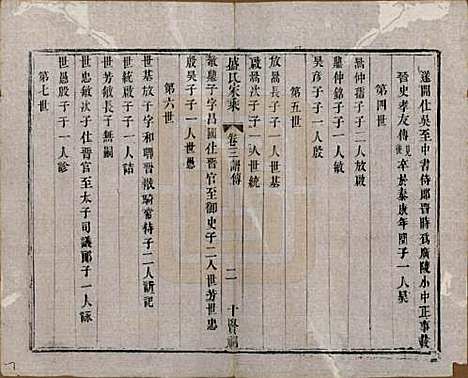 遂開仕吳至中書侍郎晉時爲廣陵小中正事載
晉史孝友傳見後卒於泰康年間子一人昊
第四世
爲仲孺子子二人放啟
墓仲銘子子一人敏
吳彥子子一人殷
第五世
放爲長子子一人世基
啟爲次子子一人世統
盛氏家乘
卷三譜傳
二
十賢祠
敏墓子字昌國仕晉官至御史子二人世芳世忠
殷昊子子一人世愚
第六世
世基放子字和聘晉散騎常侍子二人訢記
世統啟子子一人詰
世芳敏長子無嗣
世忠敏次子仕晉官至太子司議郎子一人詠
世愚殷子子一人診
第七世